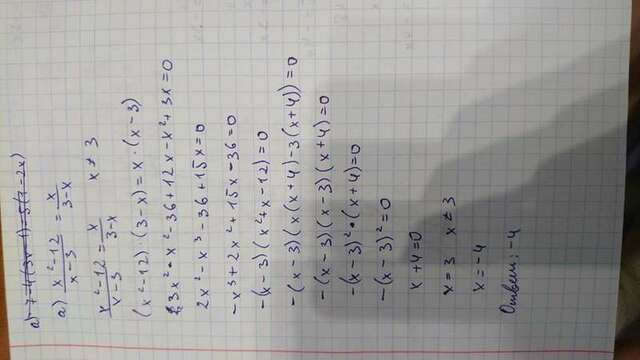 а) 7-4(3x-1)=5(1-2x)
а) x²-12/x-3 = x/3-x
x²-12/x-3 = x/3-x x≠3
(x²-12)·(3-x)=x·(x-3)
3x²·x²-36+12x-x²+3x=0
2x²-x³-36+15x=0
-x³+2x²+15x-36=0
-(x-3)(x²+x-12)=0
-(x-3)(x(x+4)-3(x+4))=0
-(x-3)(x-3)(x+4)=0
-(x-3)²·(x+4)=0
-(x-3)²=0
x+4=0
x=3 x≠3
x=-4
Ответ: -4